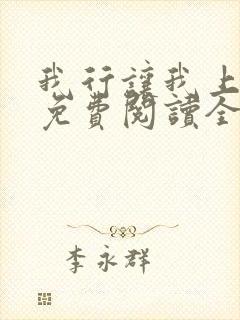 我行讓我上
免費閱讀全
李永群